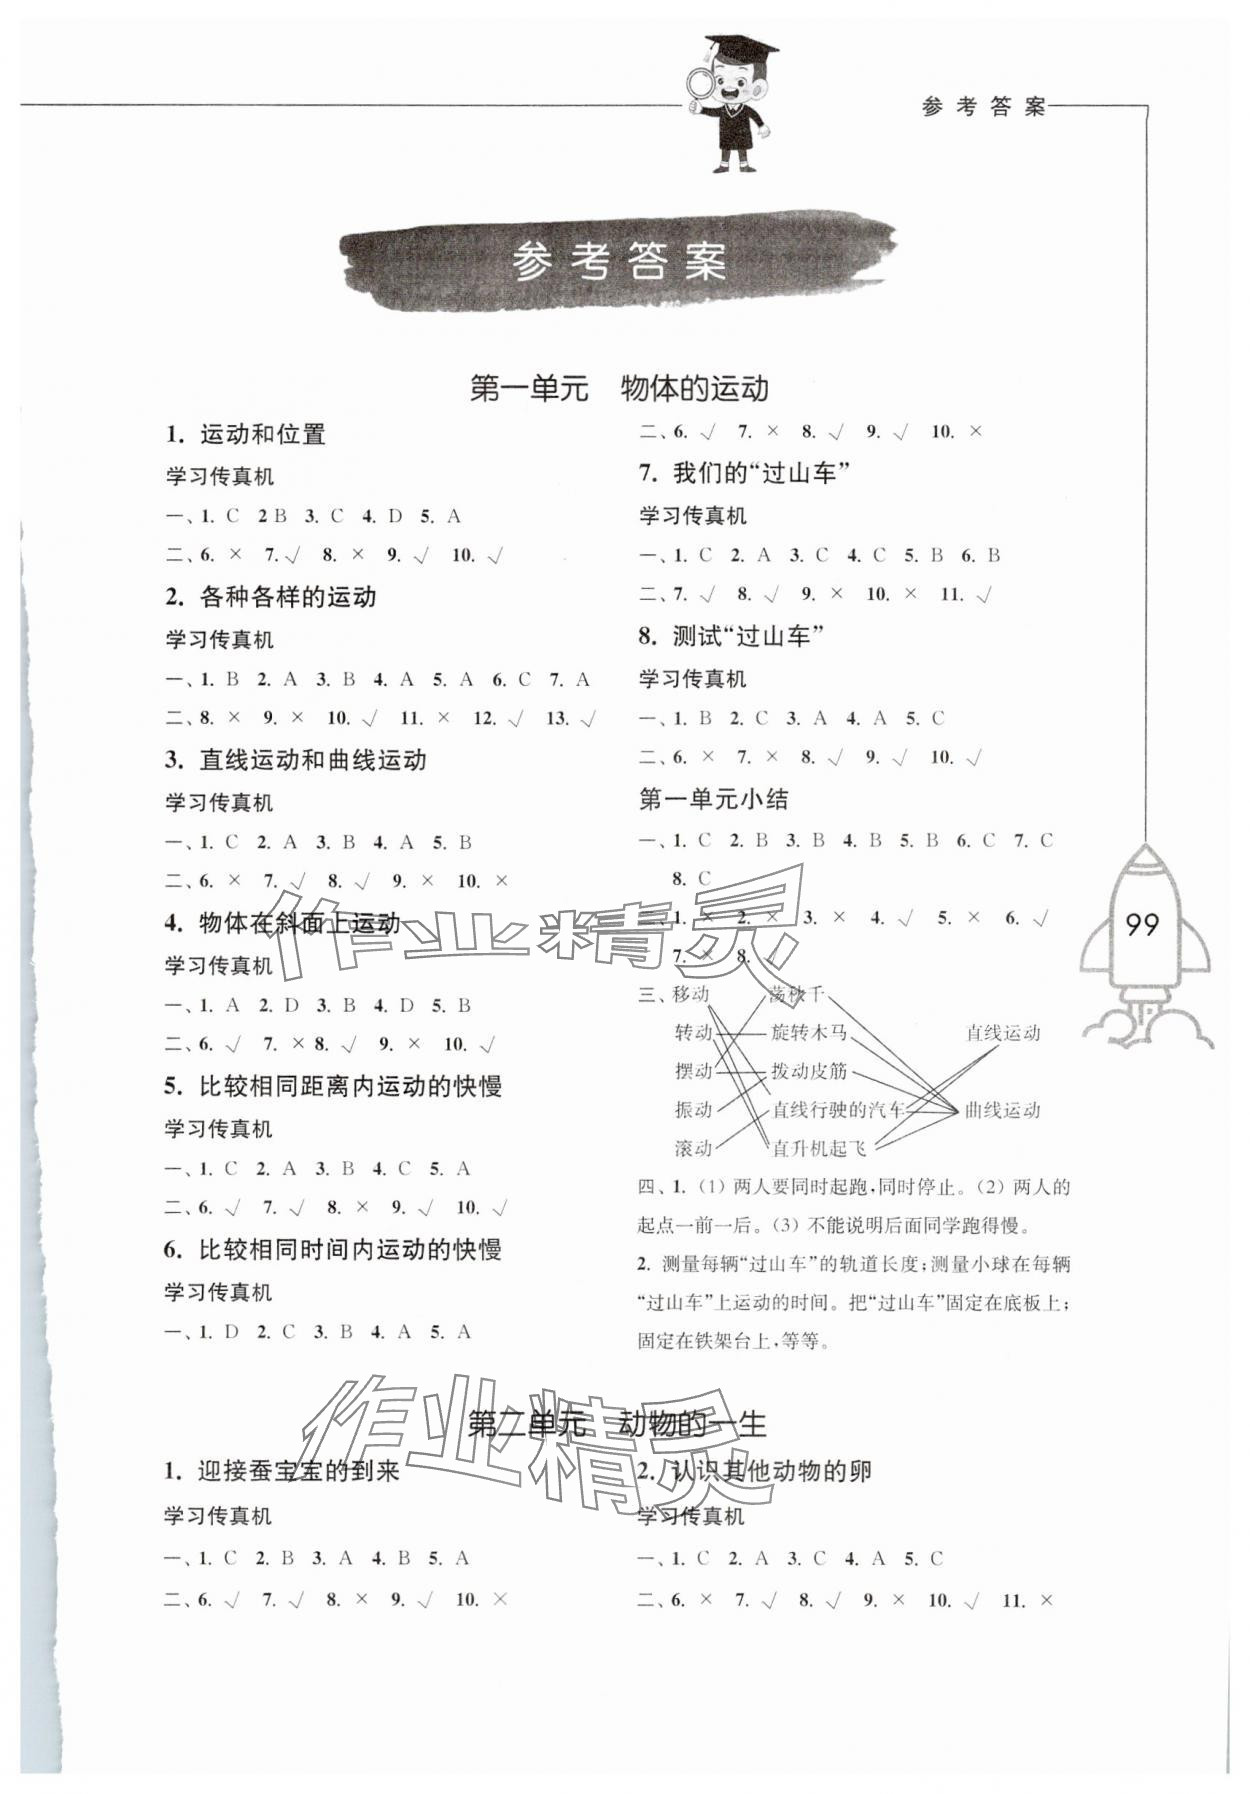 参考答案
参考答案
第一单元 物体的运动
1. 运动和位置
学习传真机
一、1. C 2 B 3. C 4. D 5. A
二、6. × 7. √ 8. × 9. √ 10. √
2. 各种各样的运动
学习传真机
一、1. B 2. A 3. B 4. A 5. A 6. C 7. A
二、8. × 9. × 10. √ 11. × 12. √ 13. √
3. 直线运动和曲线运动
学习传真机
一、1. C 2. A 3. B 4. A 5. B
二、6. × 7. √ 8. √ 9. × 10. ×
4. 物体在斜面上运动
学习传真机
一、1. A 2. D 3. B 4. D 5. B
二、6. √ 7. × 8. √ 9. × 10. √
5. 比较相同距离内运动的快慢
学习传真机
一、1. C 2. A 3. B 4. C 5. A
二、6. √ 7. √ 8. × 9. √ 10. √
6. 比较相同时间内运动的快慢
学习传真机
一、1. D 2. C 3. B 4. A 5. A
二、6. √ 7. × 8. √ 9. √ 10. ×
7. 我们的“过山车”
学习传真机
一、1. C 2. A 3. C 4. C 5. B 6. B
二、7. √ 8. √ 9. × 10. × 11. √
8. 测试“过山车”
学习传真机
一、1. B 2. C 3. A 4. A 5. C
二、6. × 7. × 8. √ 9. √ 10. √
第一单元小结
一、1. C 2. B 3. B 4. B 5. B 6. C 7. C
8. C
二、1. × 2. × 3. × 4. √ 5. × 6. √
7. × 8. √
三、移动 荡秋千
转动 旋转木马 直线运动
摆动 拨动皮筋
振动 直线行驶的汽车 曲线运动
滚动 直升机起飞
四、1. (1) 两人要同时起跑,同时停止。(2) 两人的
起点一前一后。(3) 不能说明后面同学跑得慢。
2. 测量每辆“过山车”的轨道长度;测量小球在每辆
“过山车”上运动的时间。把“过山车”固定在底板上;
固定在铁架台上,等等。
99
第二单元 动物的一生
1. 迎接蚕宝宝的到来
学习传真机
一、1. C 2. B 3. A 4. B 5. A
二、6. √ 7. √ 8. × 9. √ 10. ×
2. 认识其他动物的卵
学习传真机
一、1. C 2. A 3. C 4. A 5. C
二、6. × 7. √ 8. √ 9. × 10. √ 11. ×
作业精灵
作业精灵